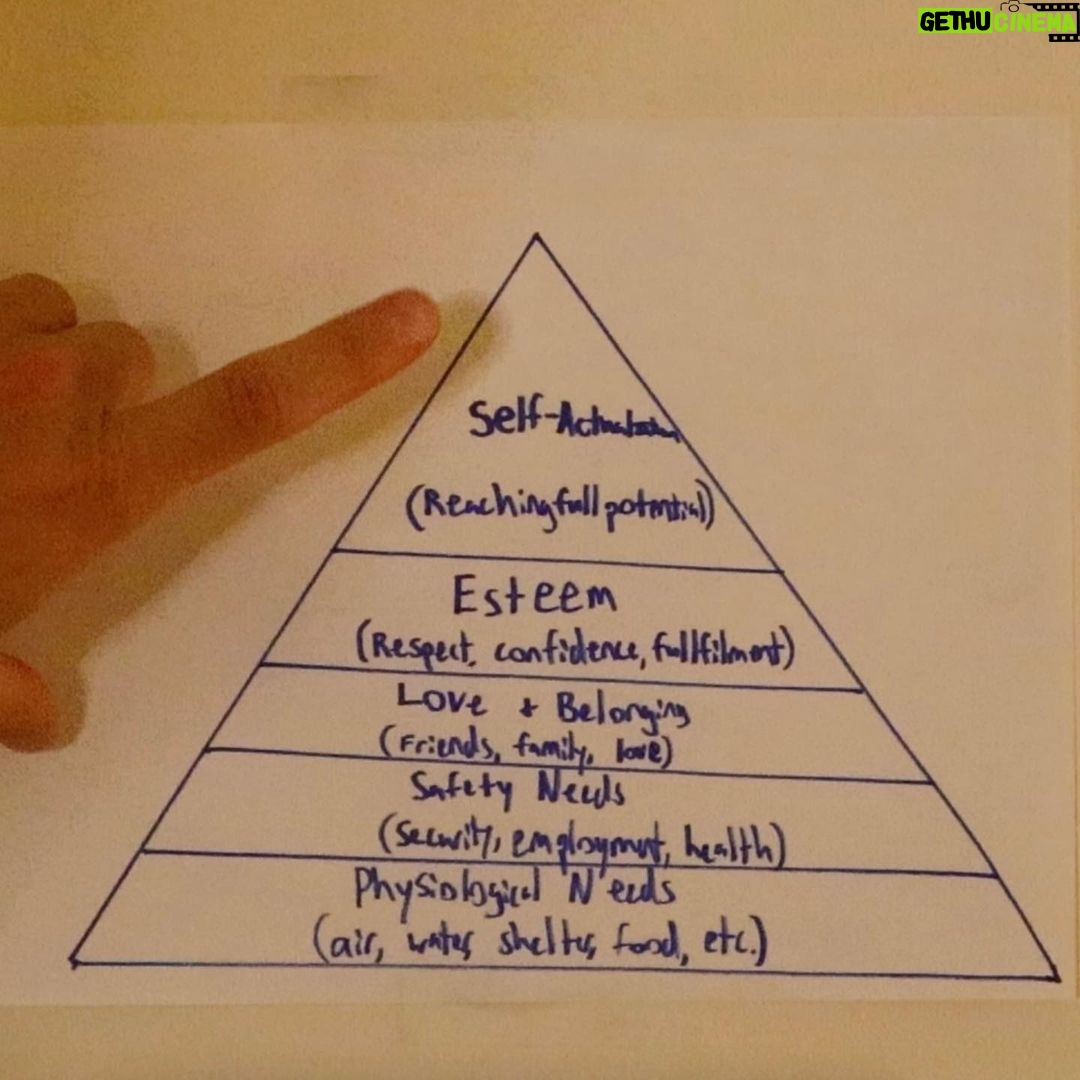 GETHU CINEMA
Self-Actualization
(Reaching full potential)
Esteem
(Respect, confidence, fullfilment)
Love + Belonging
(Friends, family, love)
Safety Needs
(Security, employment, health)
Physiological Needs
(air, water, shelter, food, etc.)